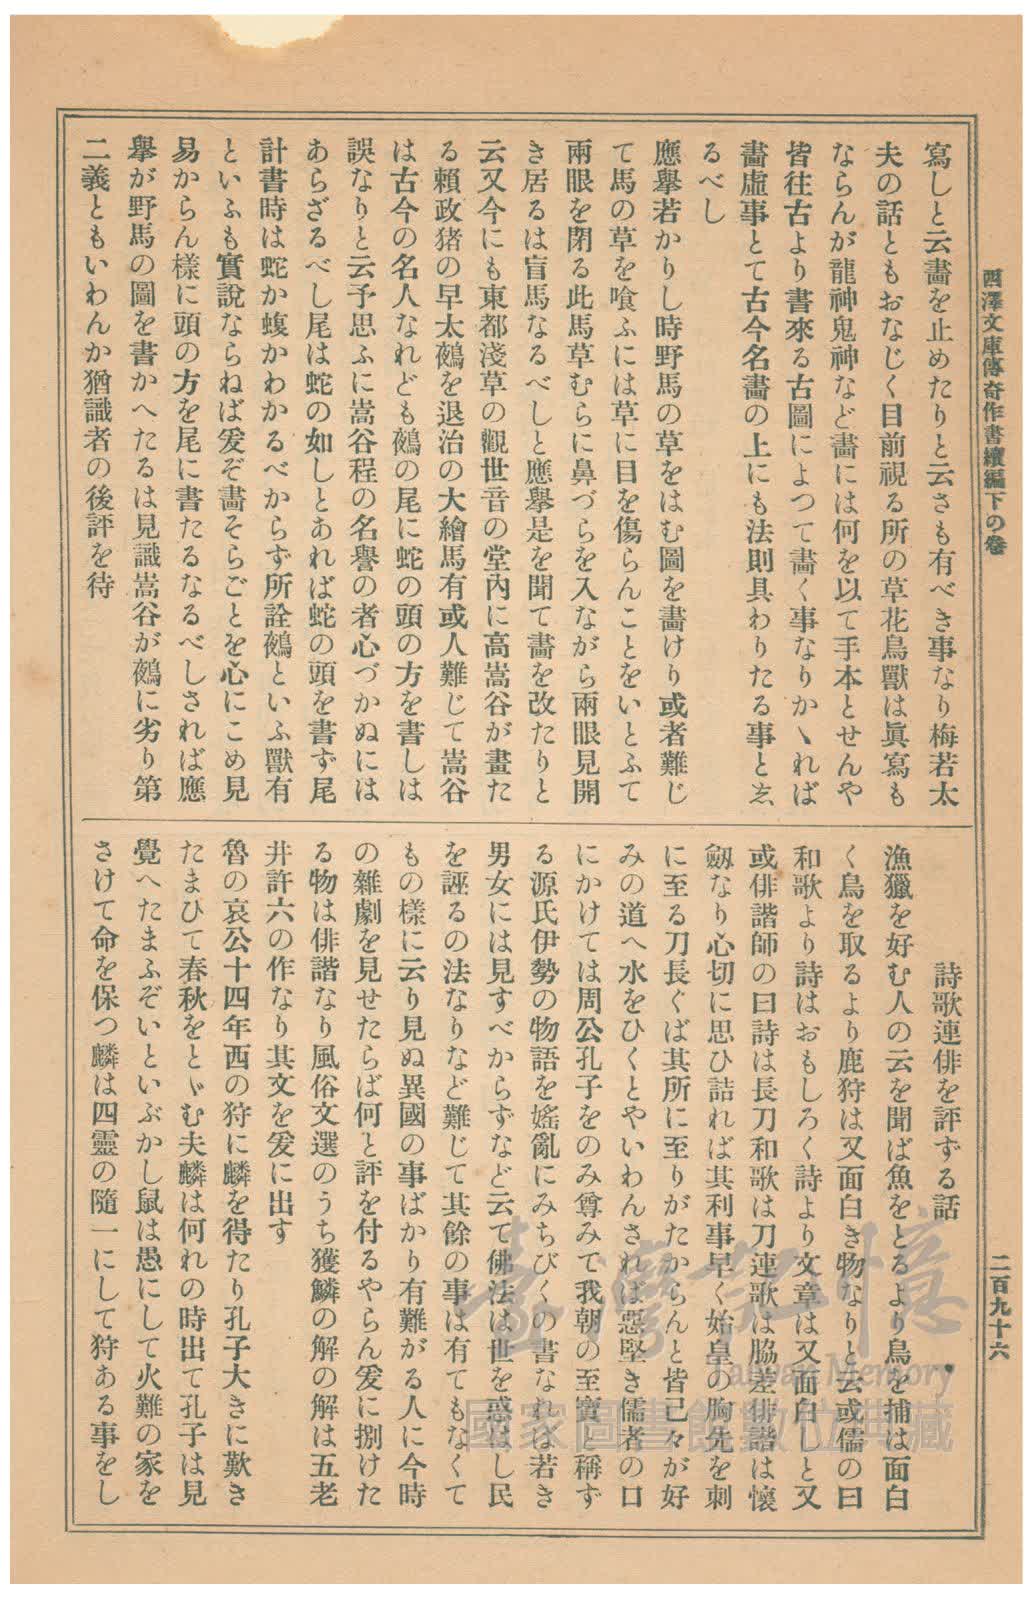 西澤文庫傳奇作書續編下の卷
二百九十六
寫しと云畵を止めたりと云さも有べき事なり梅若太
夫の話ともおなじく目前視る所の草花鳥獸は眞寫も
ならんが龍神鬼神など畵には何を以て手本とせんや
皆往古より書來る古圖によつて畵く事なりかゝれば
畵虛事とて古今名畵の上にも法則具わりたる事と志
るべし
應擧若かりし時野馬の草をはむ圖を畵けり或者難じ
て馬の草を喰ふには草に目を傷らんことをいとふて
兩眼を閉る此馬草むらに鼻づらを入ながら兩眼見開
き居るは盲馬なるべしと應擧是を聞て畵を改たりと
云又今にも東都淺草の觀世音の堂內に高嵩谷が畫た
る賴政猪の早太鵺を退治の大繪馬有或人難じて嵩谷
は古今の名人なれども鵺の尾に蛇の頭の方を書しは
誤なりと云予思ふに嵩谷程の名譽の者心づかぬには
あらざるべし尾は蛇の如しとあれば蛇の頭を書ず尾
計書時は蛇か蝮かわかるべからず所詮鵺といふ獸有
といふも實說ならねば爰ぞ畵そらごとを心にこめ見
易からん樣に頭の方を尾に書たるなるべしされば應
擧が野馬の圖を書かへたるは見識嵩谷が鵺に劣り第
二義ともいわんか猶識者の後評を待
詩歌連俳を評ずる話
漁獵を好む人の云を聞ば魚をとるより鳥を捕は面白
く鳥を取るより鹿狩は又面白き物なりと云或儒の曰
和歌より詩はおもしろく詩より文章は又面白しと又
或俳諧師の曰詩は長刀和歌は刀連歌は脇差俳諧は懷
劔なり心切に思ひ詰れば其利事早く始皇の胸先を刺
に至る刀長ぐば其所に至りがたからんと皆己々が好
みの道へ水をひくとやいわんされば惡堅き儒者の口
にかけては周公孔子をのみ尊みて我朝の至寶と稱ず
る源氏伊勢の物語を婬亂にみちびくの書なれは若き
男女には見すべからずなど云て佛法は世を惑はし民
を誣るの法なりなど難じて其餘の事は有てもなくて
もの樣に云り見ぬ異國の事ばかり有難がる人に今時
の雜劇を見せたらば何と評を付るやらん爰に捌けた
る物は俳諧なり風俗文選のうち獲麟の解の解は五老
井許六の作なり其文を爰に出す
魯の哀公十四年西の狩に麟を得たり孔子大きに歎き
たまひて春秋をとゞむ夫麟は何れの時出て孔子は見
覺へたまふぞいといぶかし鼠は愚にして火難の家を
さけて命を保つ麟は四靈の隨一にして狩ある事をし
臺灣記憶
Taiwan Memory
國家圖書館數位典藏